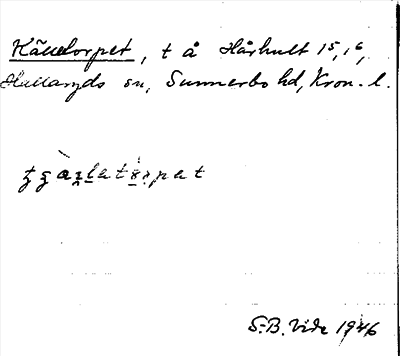 Källetorpet, t å Hårhult 15, 16,
Hallaryds sn, Sunnerbo hd, Kron. l.
S.-B. Vide 1946